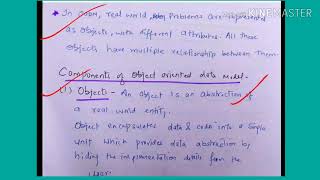 KINEMASTER
* In OODM, real world, problems are represented
as objects, with different attributes. All these
objects have multiple relationship between them.
Components of Object oriented data model-
(1) Objects - An object is an abstraction of
a real world entity.
Object encapsulates data & code into a single
unit which provides data abstraction by
hiding the implementation details from the
user.